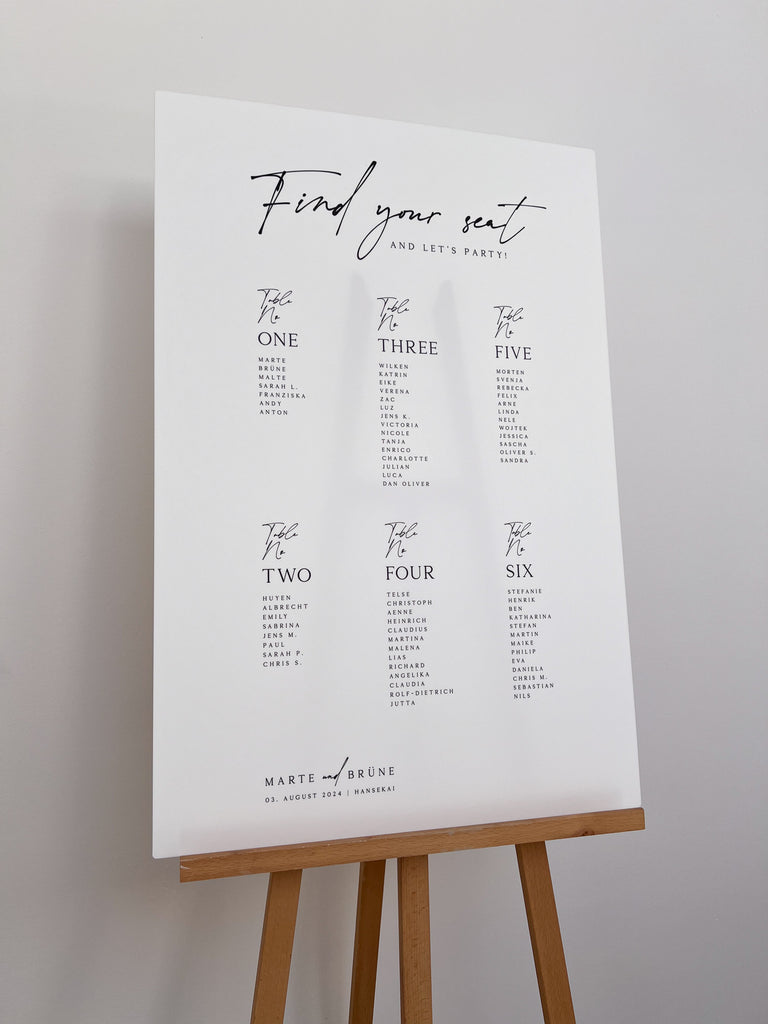 Find your seat
AND LET'S PARTY!
Table
No
ONE
MARTE
BRÜNE
MALTE
SARAH L.
FRANZISKA
ANDY
ANTON
Table
No
THREE
WILKEN
KATRIN
EIKE
VERENA
ZAC
LUZ
JENS K.
VICTORIA
NICOLE
TANJA
ENRICO
CHARLOTTE
JULIAN
LUCA
DAN OLIVER
Table
No
FIVE
MORTEN
SVENJA
REBECKA
FELIX
ARNE
LINDA
NELE
WOJTEK
JESSICA
SASCHA
OLIVER S.
SANDRA
Table
No
TWO
HUYEN
ALBRECHT
EMILY
SABRINA
JENS M.
PAUL
SARAH P.
CHRIS S.
Table
No
FOUR
TELSE
CHRISTOPH
AENNE
HEINRICH
CLAUDIUS
MARTINA
MALENA
LIAS
RICHARD
ANGELIKA
CLAUDIA
ROLF-DIETRICH
JUTTA
Table
No
SIX
STEFANIE
HENRIK
BEN
KATHARINA
STEFAN
MARTIN
MAIKE
PHILIP
EVA
DANIELA
CHRIS M.
SEBASTIAN
NILS
MARTE and BRÜNE
03. AUGUST 2024 | HANSEKAI